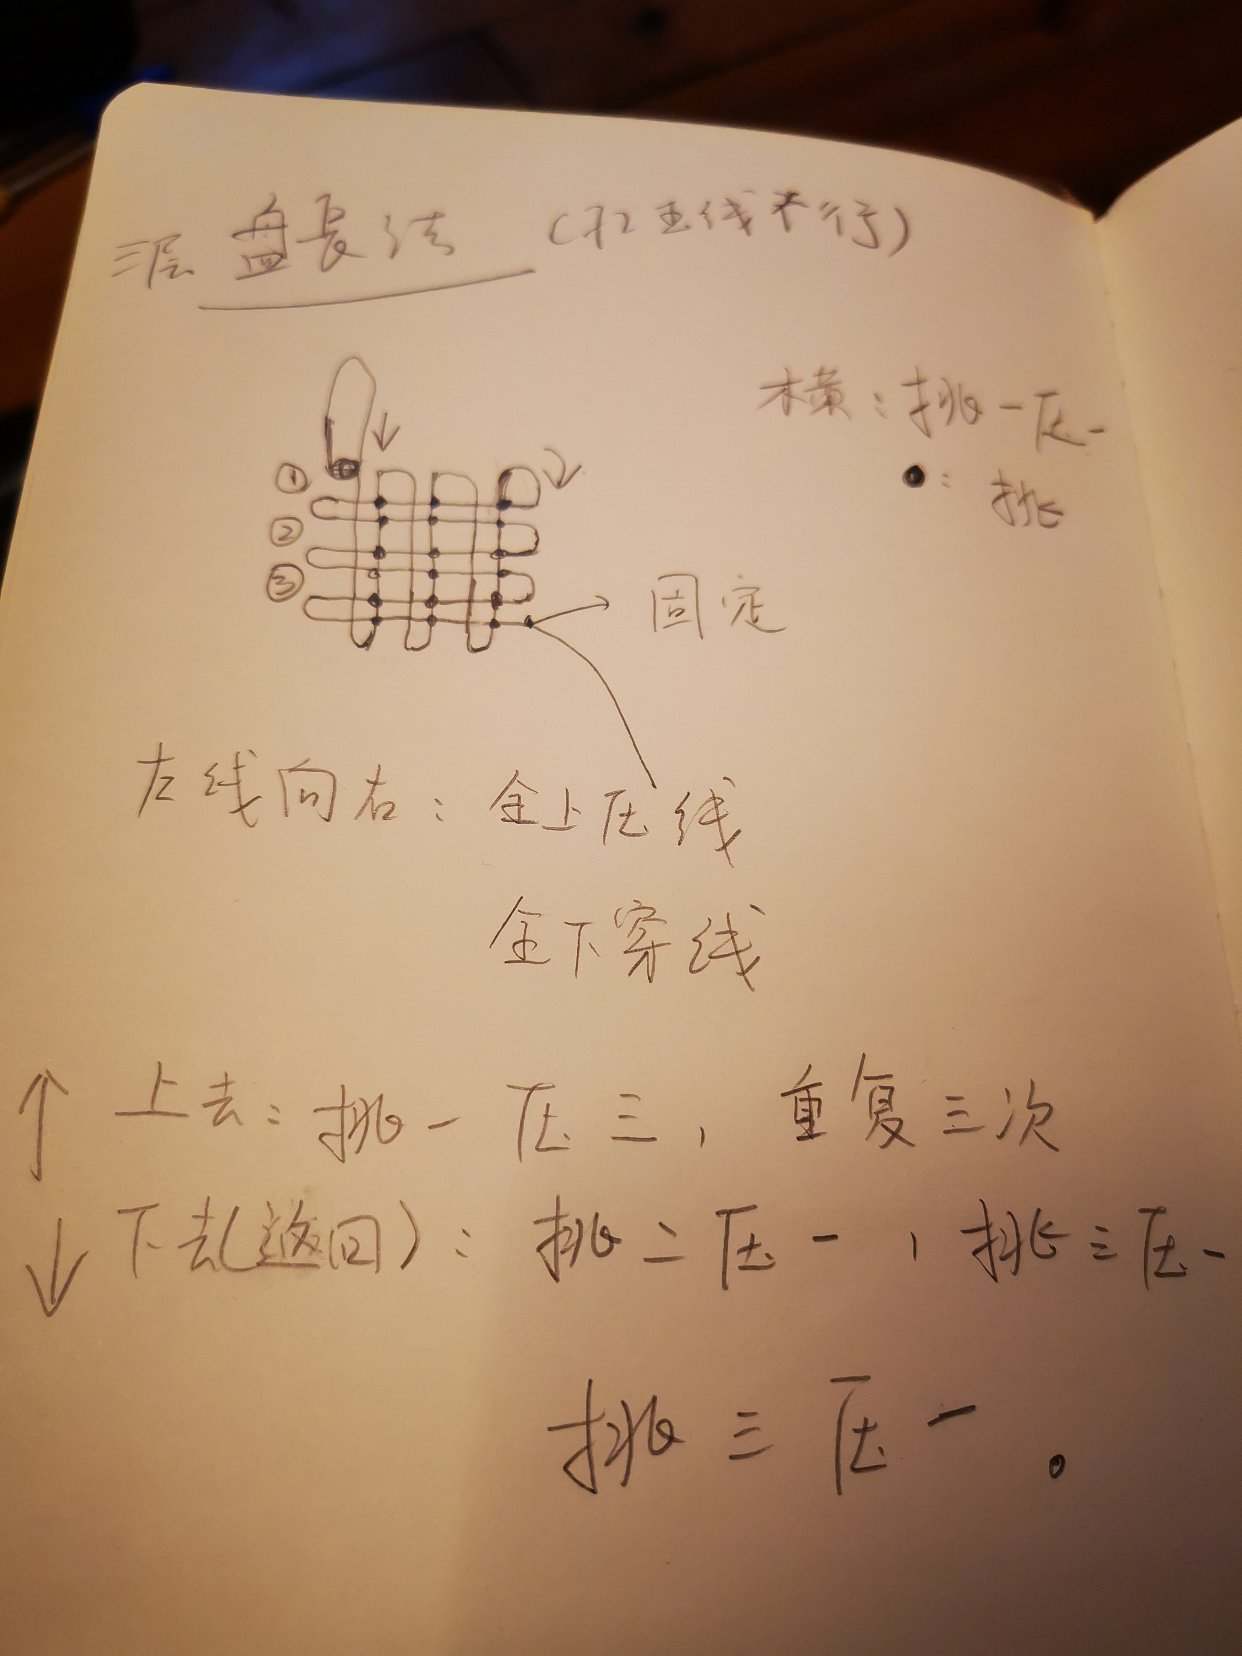 三层盘长结 (玉线不行)
横:挑一压一
:挑
①
②
③
固定
左线向右:全上压线
全下穿线
↑上去:挑一压三,重复三次
↓下去(返回):挑二压一,挑三压一
挑三压一。